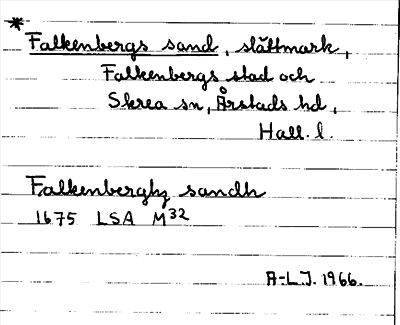 * Falkenbergs sand, slåttmark,
Falkenbergs stad och
Skrea sn, Årstads hd,
Hall. l.
Falkenberghz sandh
1675 LSA M32
A-L.J. 1966.